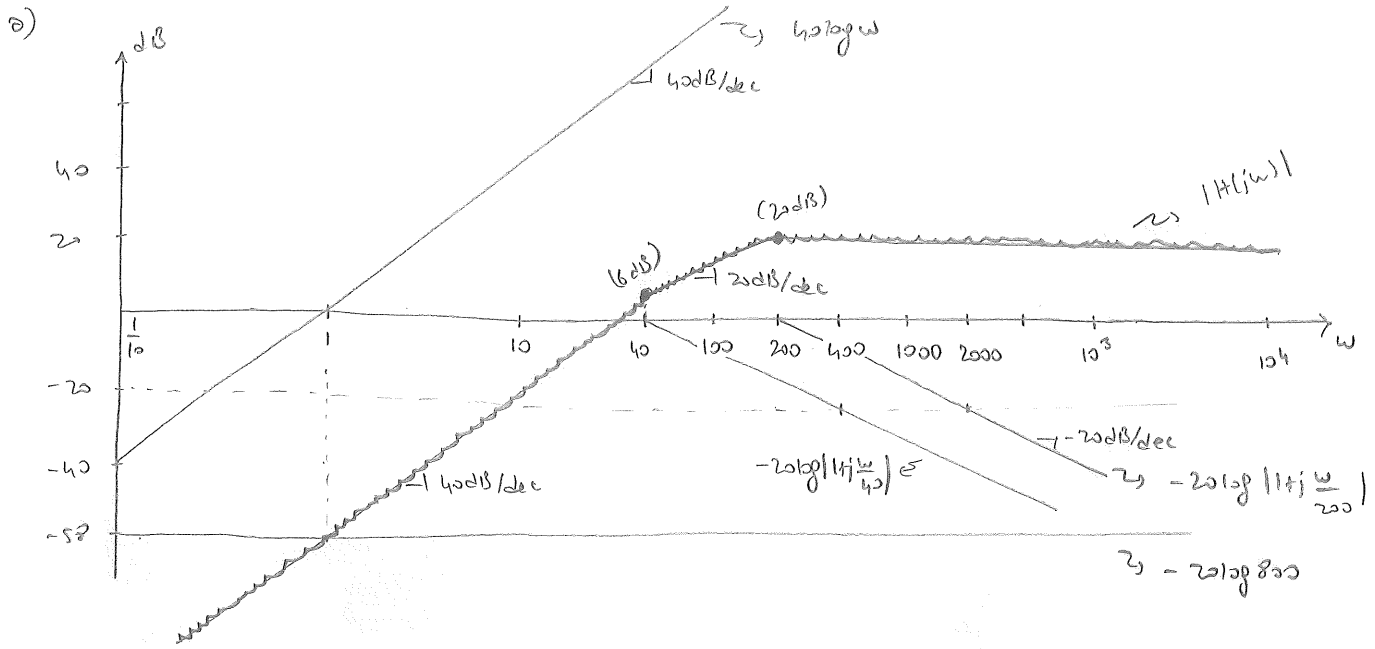 a)
dB
40 log w
40dB/dec
40
20
(20dB)
|H(jw)|
(6dB)
20dB/dec
1/10
1
10
40
100
200
400
1000
2000
10³
10⁴
w
-20
-40
40dB/dec
-20log|1+j w/40|
-20dB/dec
-20log|1+j w/200|
-58
-20log800